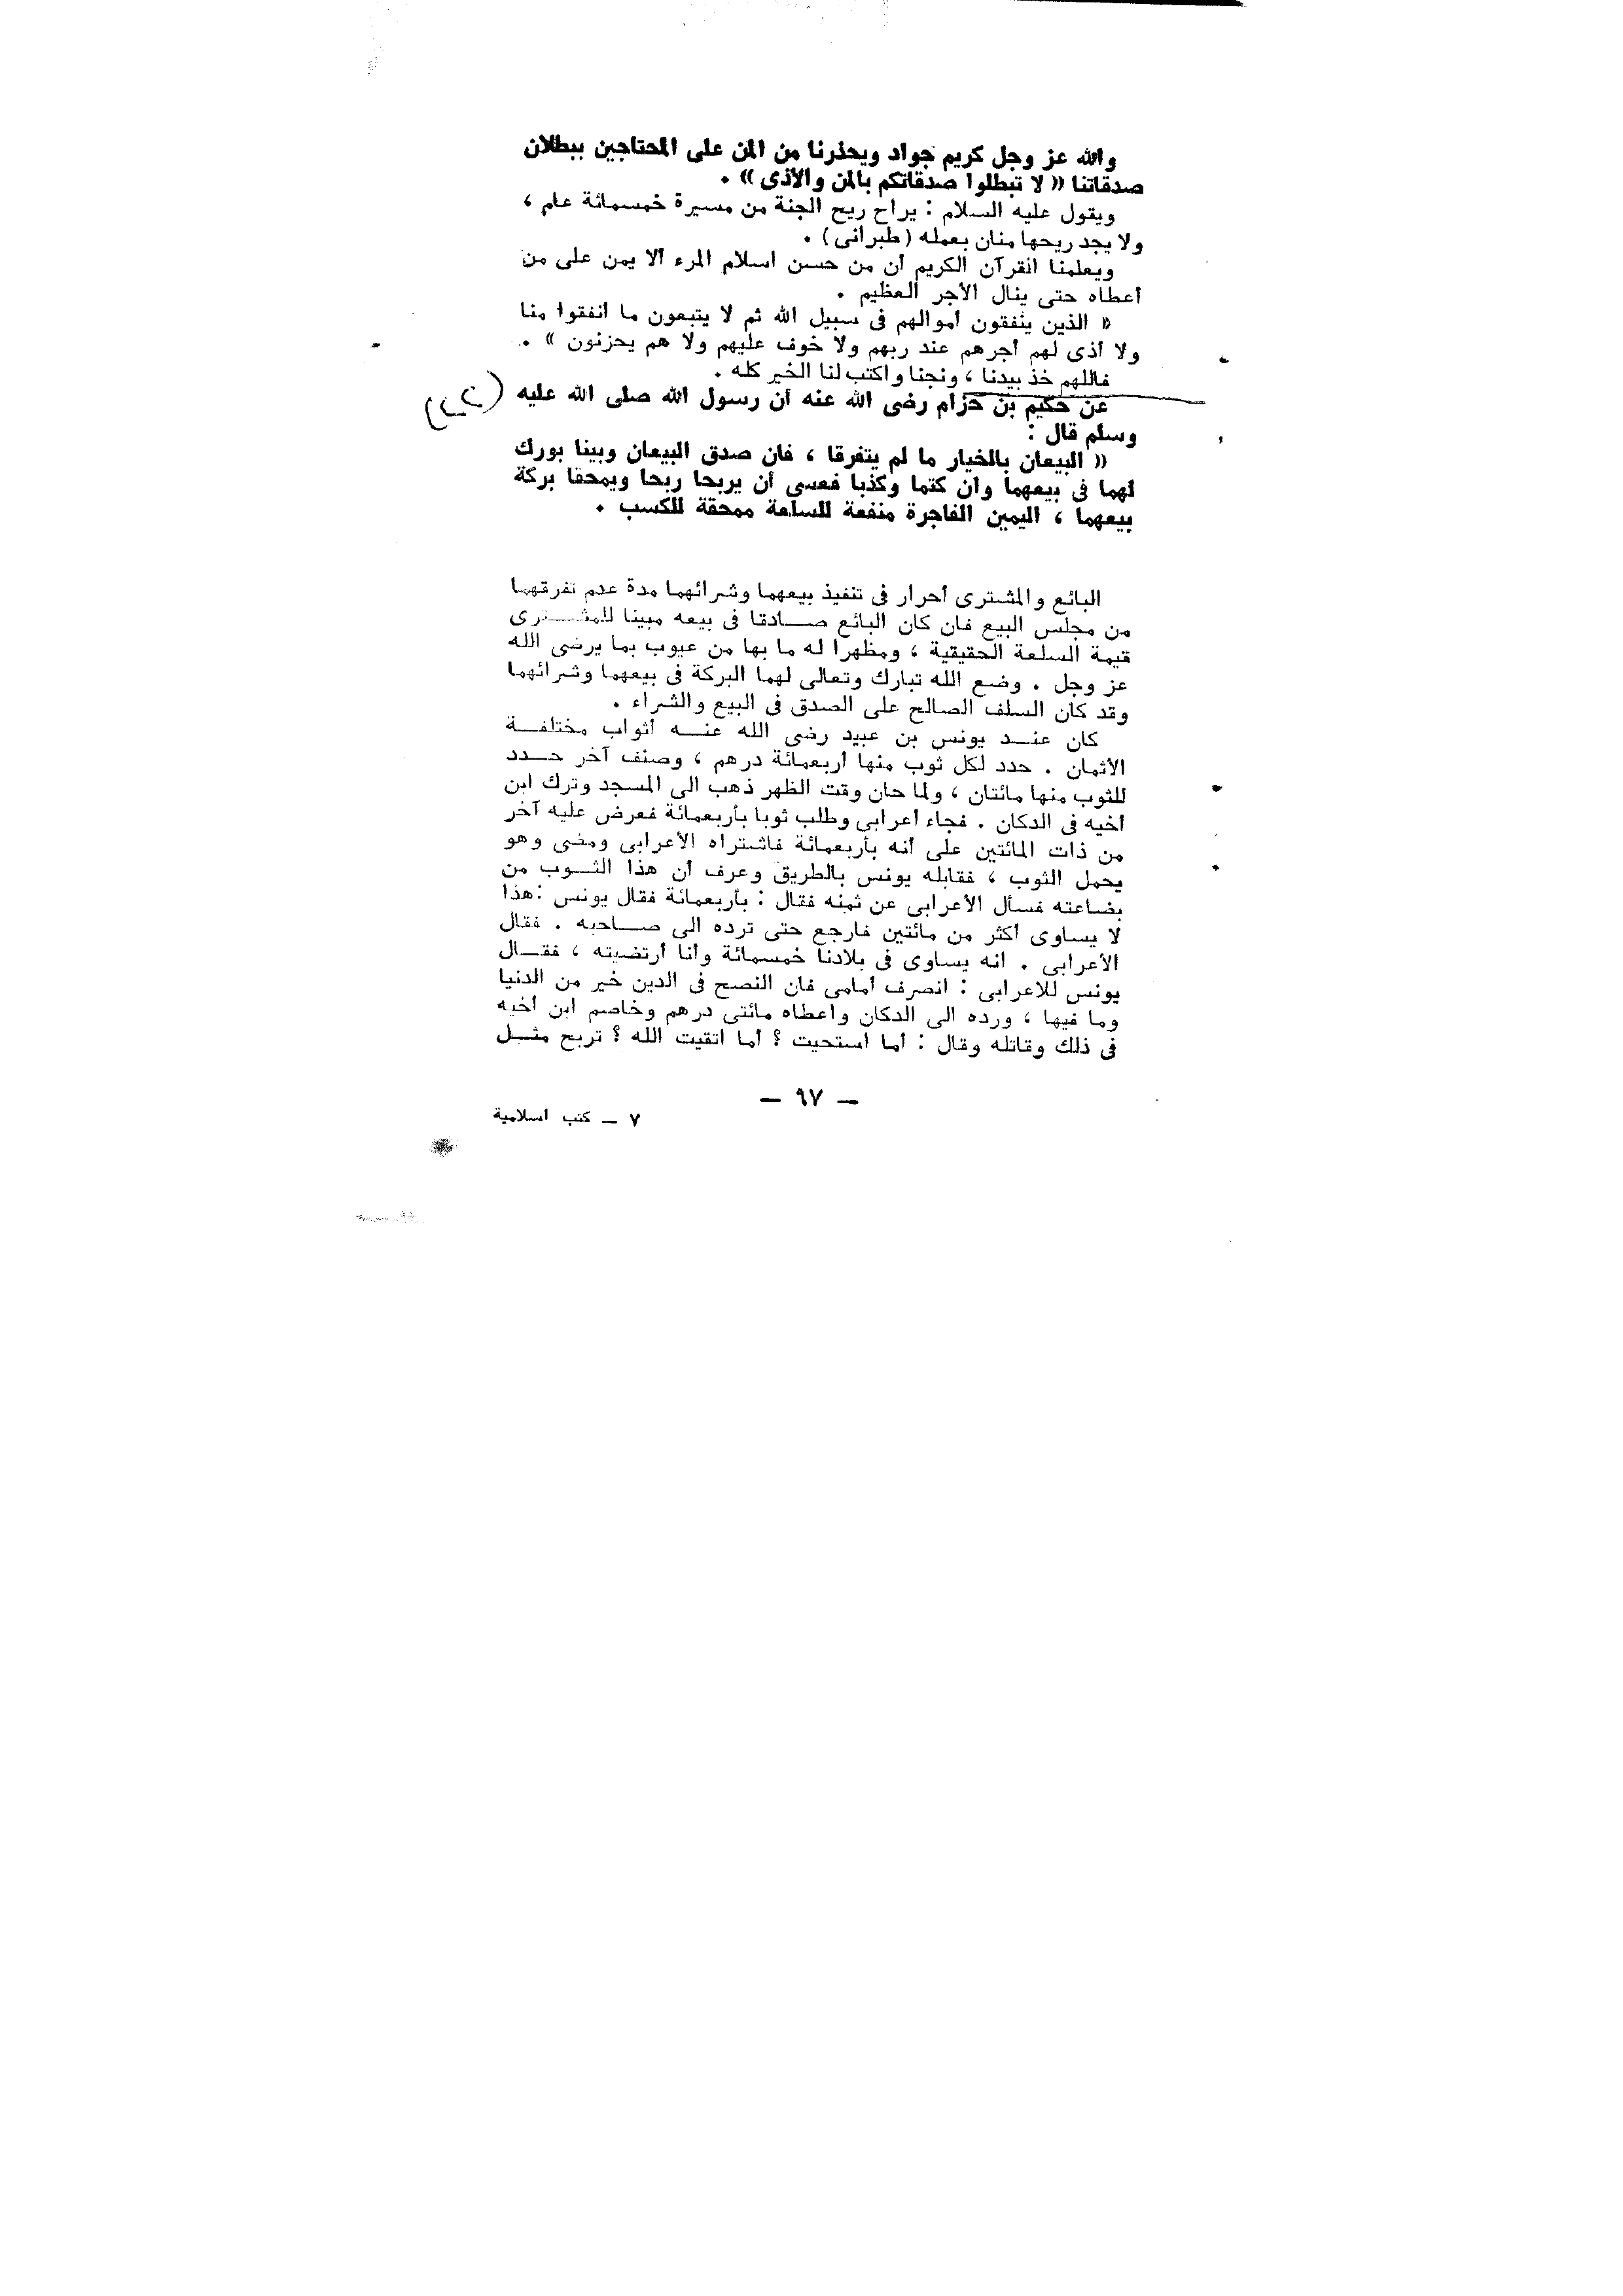 والله عز وجل كريم جواد ويحذرنا من المن على المحتاجين ببطلان
صدقاتنا « لا تبطلوا صدقاتكم بالمن والأذى » .
ويقول عليه السلام : يراح ريح الجنة من مسيرة خمسمائة عام ،
ولا يجد ريحها منان بعمله ( طبرانى ) .
ويعلمنا القرآن الكريم أن من حسن اسلام المرء ألا يمن على من
أعطاه حتى ينال الأجر العظيم .
« الذين ينفقون أموالهم فى سبيل الله ثم لا يتبعون ما أنفقوا منا
ولا أذى لهم أجرهم عند ربهم ولا خوف عليهم ولا هم يحزنون » .
فاللهم خذ بيدنا ، ونجنا واكتب لنا الخير كله .
عن حكيم بن حزام رضى الله عنه أن رسول الله صلى الله عليه
وسلم قال :
« البيعان بالخيار ما لم يتفرقا ، فان صدق البيعان وبينا بورك
لهما فى بيعهما وان كتما وكذبا فعسى أن يربحا ربحا ويمحقا بركة
بيعهما ، اليمين الفاجرة منفعة للسلعة ممحقة للكسب .
البائع والمشترى أحرار فى تنفيذ بيعهما وشرائهما مدة عدم تفرقهما
من مجلس البيع فان كان البائع صـــادقا فى بيعه مبينا للمشـــترى
قيمة السلعة الحقيقية ، ومظهرا له ما بها من عيوب بما يرضى الله
عز وجل . وضع الله تبارك وتعالى لهما البركة فى بيعهما وشرائهما
وقد كان السلف الصالح على الصدق فى البيع والشراء .
كان عنـــد يونس بن عبيد رضى الله عنـــه أثواب مختلفـــة
الأثمان . حدد لكل ثوب منها أربعمائة درهم ، وصنف آخر حـــدد
للثوب منها مائتان ، ولما حان وقت الظهر ذهب الى المسجد وترك ابن
أخيه فى الدكان . فجاء أعرابى وطلب ثوبا بأربعمائة فعرض عليه آخر
من ذات المائتين على أنه بأربعمائة فاشتراه الأعرابى ومضى وهو
يحمل الثوب ، فقابله يونس بالطريق وعرف أن هذا الثـــوب من
بضاعته فسأل الأعرابى عن ثمنه فقال : بأربعمائة فقال يونس : هذا
لا يساوى أكثر من مائتين فارجع حتى ترده الى صـــاحبه . فقال
الأعرابى . انه يساوى فى بلادنا خمسمائة وأنا أرتضيته ، فقـــال
يونس للاعرابى : انصرف أمامى فان النصح فى الدين خير من الدنيا
وما فيها ، ورده الى الدكان وأعطاه مائتى درهم وخاصم ابن أخيه
فى ذلك وقاتله وقال : أما أستحيت ؟ أما اتقيت الله ؟ تربح مثـــل
— ٩٧ —
٧ — كتب اسلامية